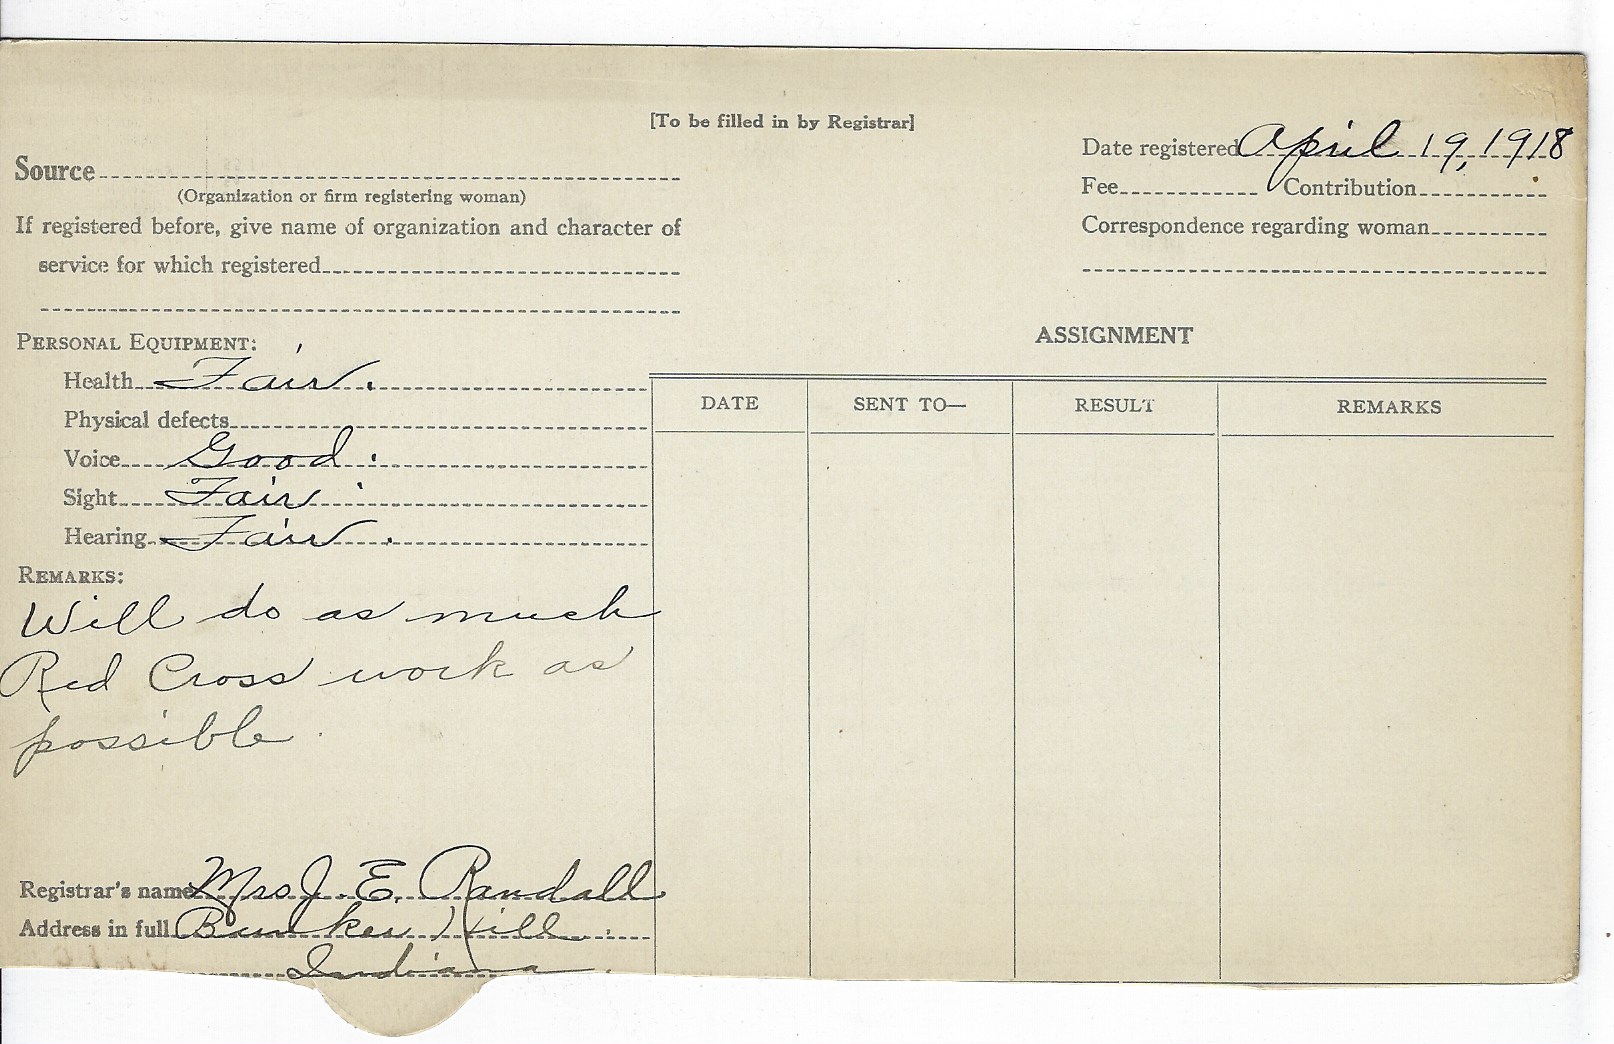 [To be filled in by Registrar]
Date registered April 19, 1918
Source
(Organization or firm registering woman)
Fee Contribution
If registered before, give name of organization and character of
service for which registered
Correspondence regarding woman
PERSONAL EQUIPMENT:
Health Fair.
Physical defects
Voice Good.
Sight Fair
Hearing Fair.
REMARKS:
Will do as much
Red Cross work as
possible.
Registrar's name Mrs J. E. Randall
Address in full Bunker Hill
Indiana.
ASSIGNMENT
DATE SENT TO— RESULT REMARKS